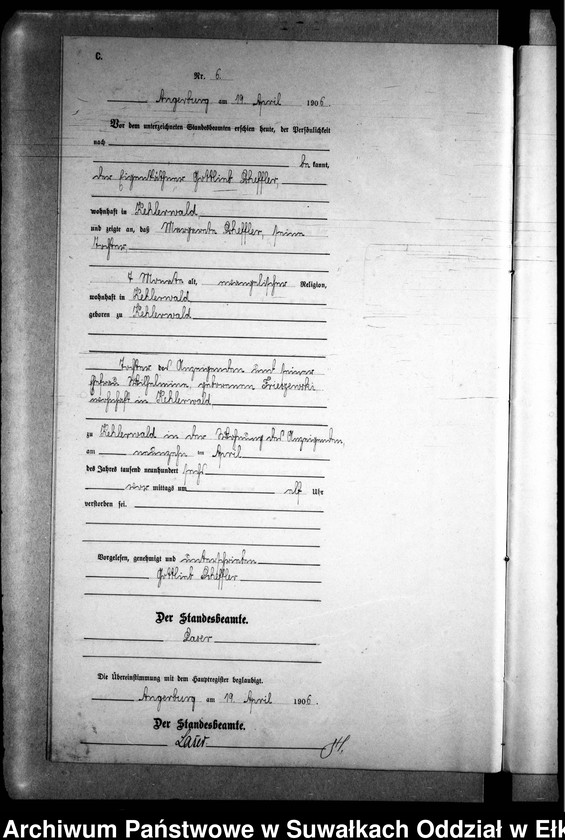 C.
Nr. 6.
Angerburg am 19 April 1906.
Vor dem unterzeichneten Standesbeamten erschien heute, der Persönlichkeit
nach
be kannt,
der Eigenkäthner Gottlieb Scheffler,
wohnhaft in Kehlerwald,
und zeigte an, daß Scheffler, seine
Tochter,
7 Monate alt, evangelischer Religion,
wohnhaft in Kehlerwald
geboren zu Kehlerwald
Tochter des Anzeigenden und seiner
Ehefrau Wilhelmine, geborenen
wohnhaft in Kehlerwald,
zu Kehlerwald in der Wohnung des Anzeigenden,
am neunzehn ten April
des Jahres tausend neunhundert sechs
vor mittags um elf Uhr
verstorben sei.
Vorgelesen, genehmigt und unterschrieben
Gottlieb Scheffler
Der Standesbeamte.
Die Übereinstimmung mit dem Hauptregister beglaubigt.
Angerburg am 19. April 1906.
Der Standesbeamte.
Archiwum Państwowe w Suwałkach Oddział w Ełk